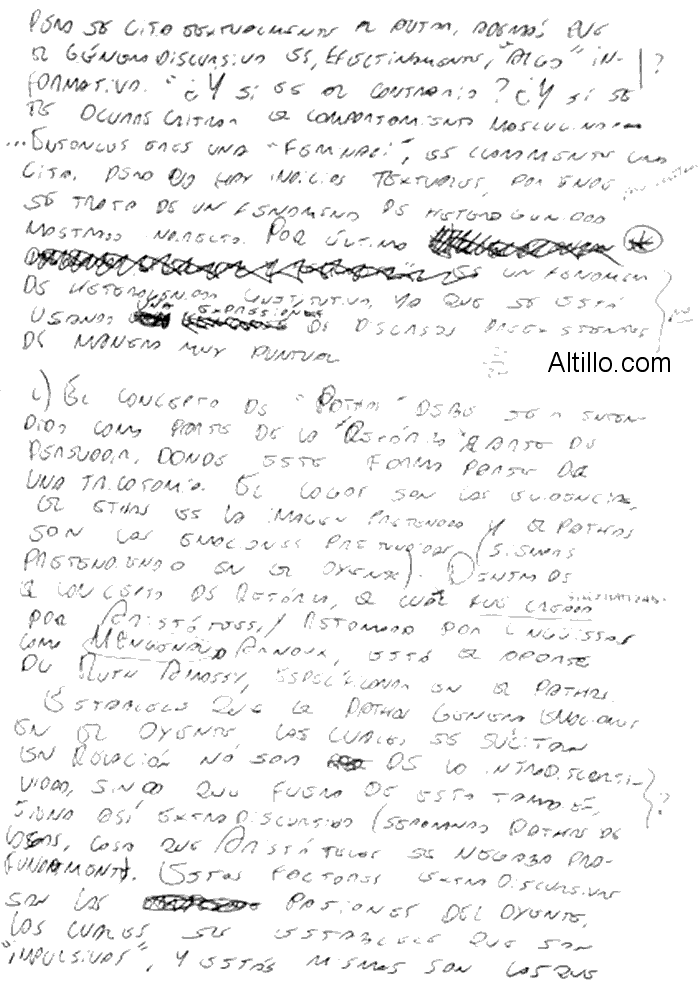 PERO SE CITA TEXTUALMENTE AL AUTOR, ADEMÁS QUE
EL GÉNERO DISCURSIVO ES, EFECTIVAMENTE, "ALGO" IN- ?
FORMATIVO. "¿Y SI ES AL CONTRARIO? ¿Y SI SE
TE OCURRE CRITICAR EL COMPORTAMIENTO MASCULINO
...ENTONCES ERES UNA "FEMINAZI", ES CLARAMENTE UNA
CITA. PERO NO HAY INDICIOS TEXTUALES, POR ENDE
SE TRATA DE UN FENOMENO DE HETEROGENEIDAD
MOSTRADA . POR ÚLTIMO *
ES UN FENOMEN
DE HETEROGENEIDAD CONSTITUTIVA, YA QUE SE ESTÁ
USANDO UNA EXPRESIONES DE DISCURSOS PREEXISTENTES
DE MANERA MUY PUNTUAL
Altillo.com
C) EL CONCEPTO DE "PATHOS" DEBE SER ENTEN-
DIDO COMO PARTE DE LA "RETÓRICA" ARTE DE
PERSUADIR, DONDE ESTE FORMA PARTE DE
UNA TRICOTOMÍA. EL LOGOS SON LAS EVIDENCIAS,
EL ETHOS ES LA IMAGEN PRETENDIDA Y EL PATHOS
SON LAS EMOCIONES PRETENDIDAS
PRETENDIENDO EN EL OYENTE). DENTRO DE
EL CONCEPTO DE RETÓRICA, EL CUAL FUE CREADO
POR ARISTÓTELES, Y RETOMADO POR LINGÜISTAS
COMO , ESTÁ EL APORTE
DE RUTH AMOSSY, EN EL PATHOS.
ESTABLECE QUE EL PATHOS GENERA EMOCIONES
EN EL OYENTE LAS CUALES SE SUCITAN
EN RELACIÓN NO SOLO DE LO INTRADISCURSI-
VIDAD, SINO QUE FUERA DE ESTA TAMBIÉN, ?
SIENDO ASÍ EXTRADISCURSIVO (SEPARANDO PATHOS DE
LOGOS, COSA QUE ARISTÓTELES SE NEGABA PRO-
FUNDAMENTE). ESTOS FACTORES EXTRADISCURSIVOS
SON LAS PASIONES DEL OYENTE,
LOS CUALES SE ESTABLECE QUE SON
"IMPULSIVOS", Y ESTÁS MISMAS SON LAS QUE